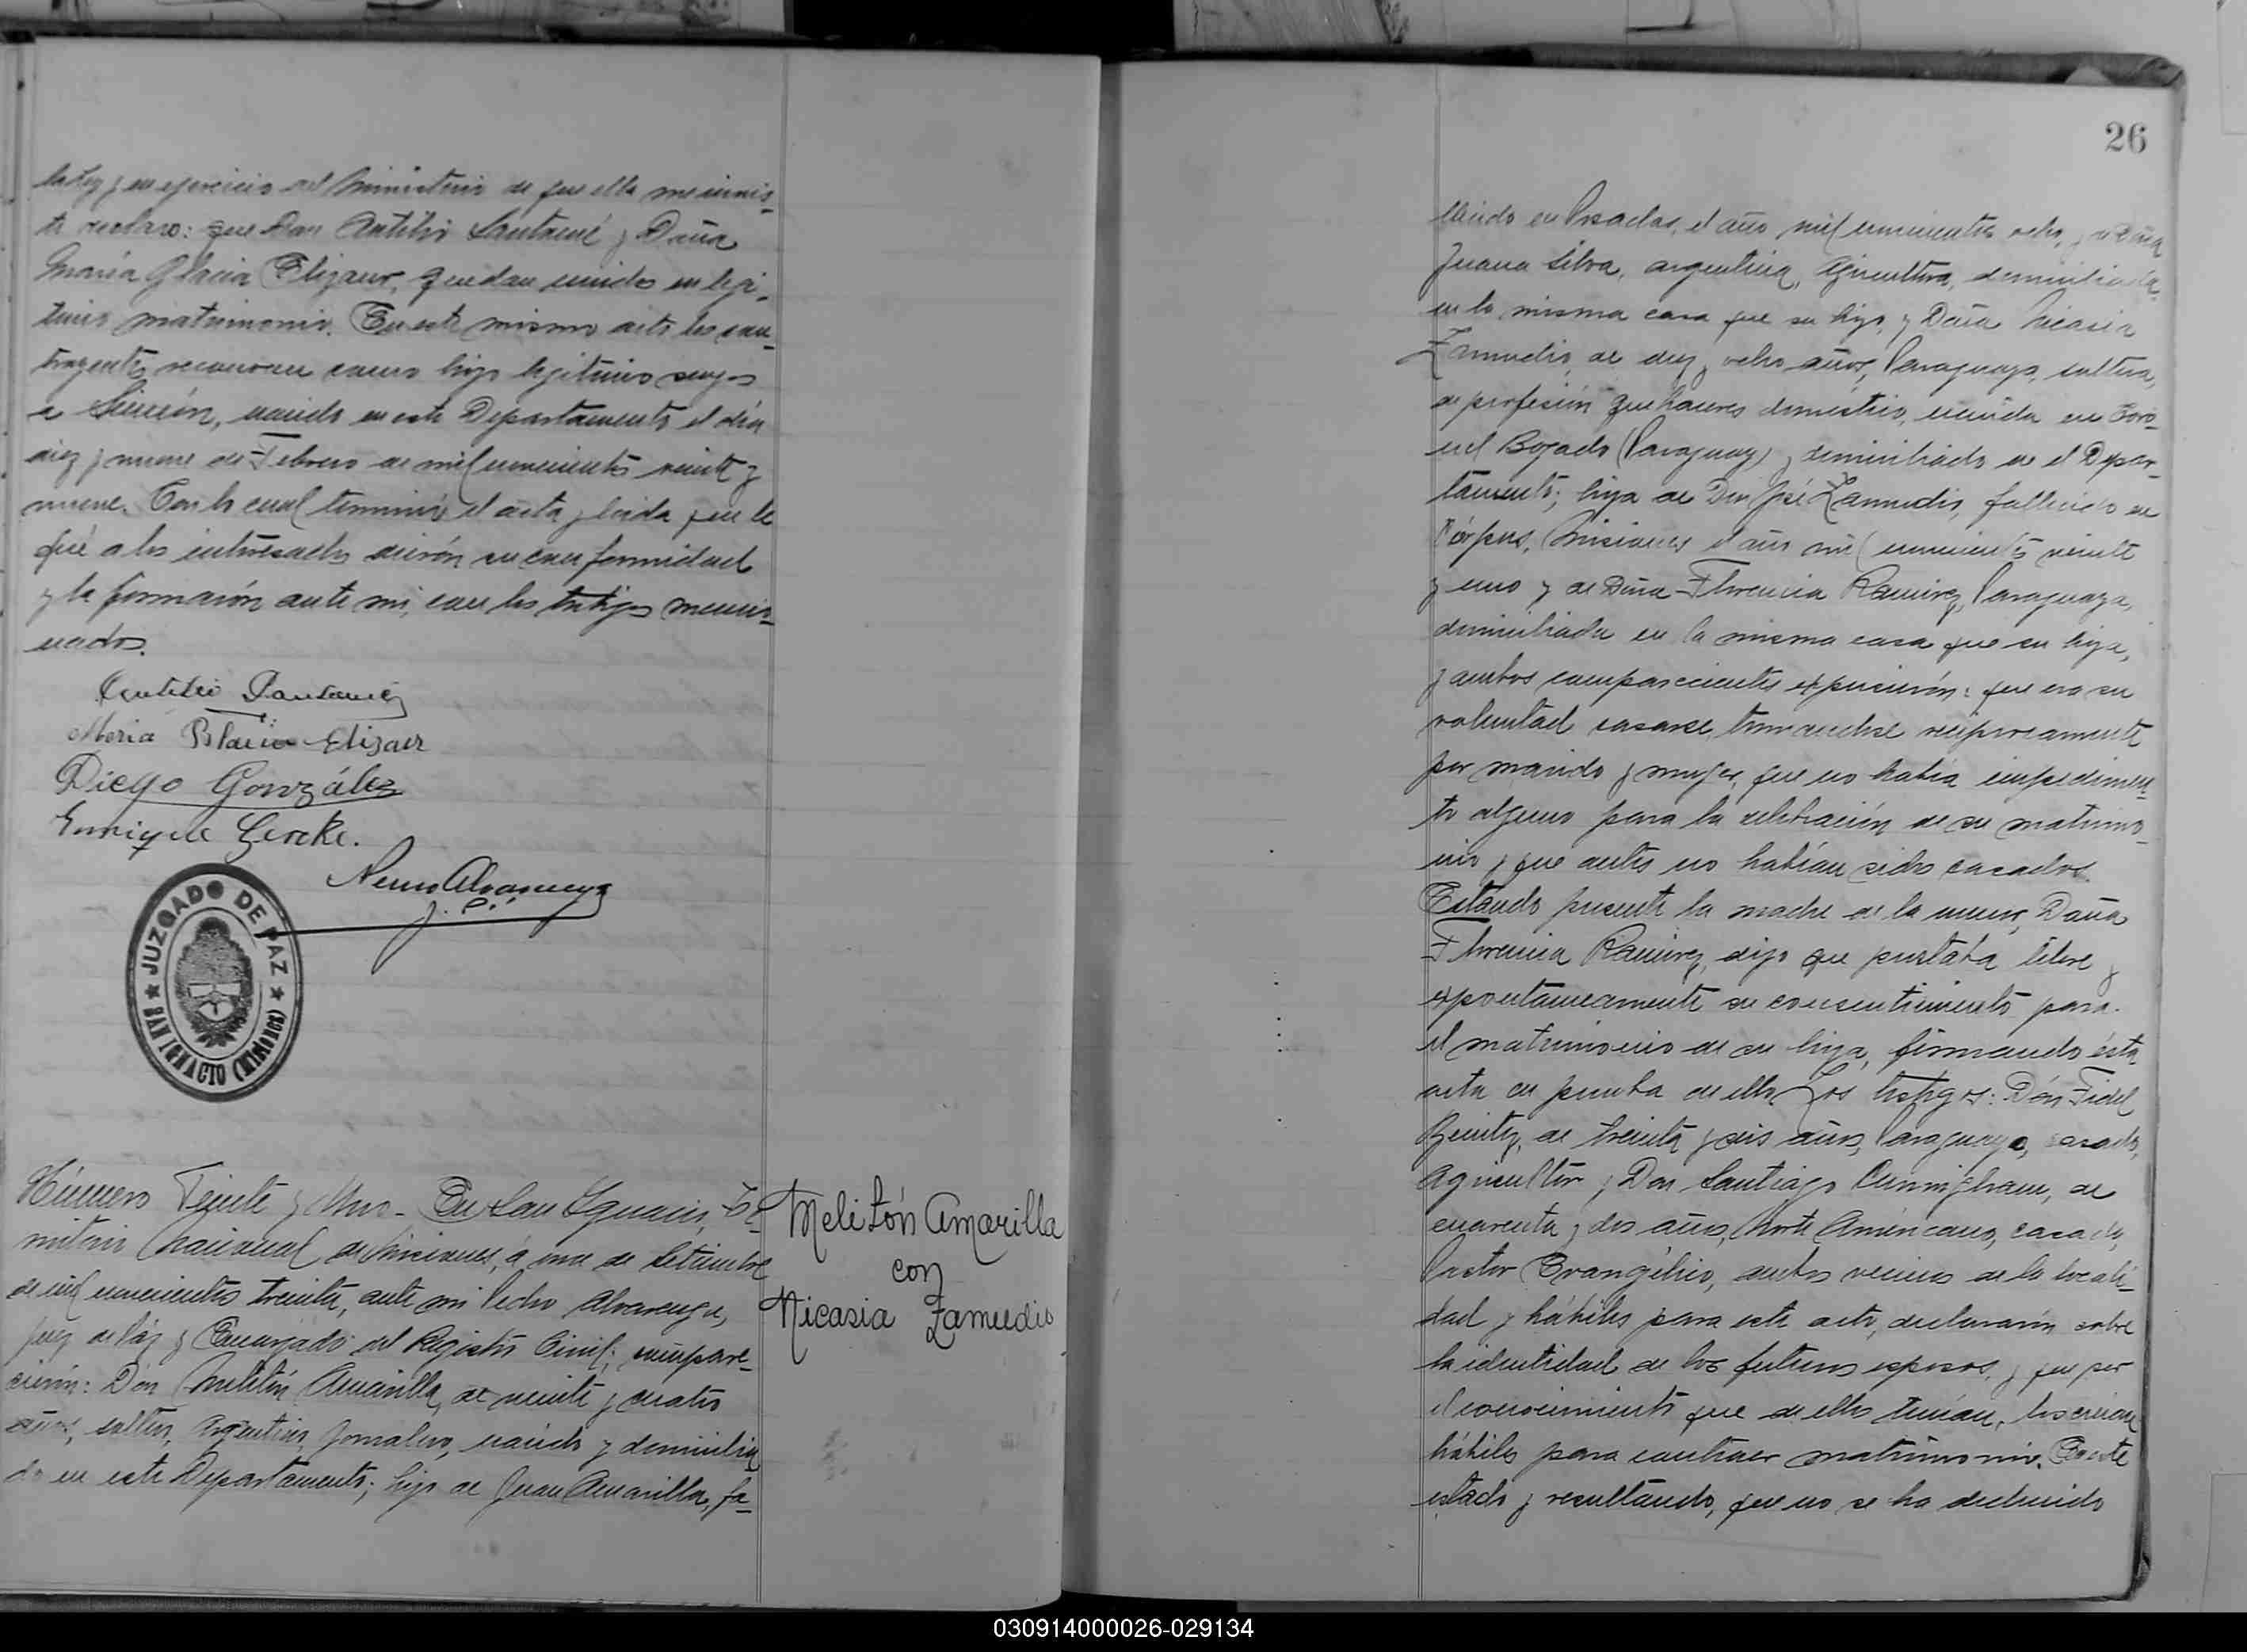 la Ley y en ejercicio del Ministerio de que ella me invis-
te declaro: que Don Antilio Santané y Doña
María Glacia Elizaur, quedan unidos en legí-
timo matrimonio. En este mismo acto los con-
trayentes reconocen como hijo legítimo suyo
a Simeón, nacido en este Departamento el día
diez y nueve de Febrero de mil novecientos veinte y
nueve. Con lo cual terminó el acta y leída que le
fué a los interesados dieron su conformidad
y la firmaron ante mi, con los testigos mencio-
nados.
María Elizaur
Diego González
Enrique Gercke.
J. P.
JUZGADO DE PAZ
SAN IGNACIO (MISIONES)
Número Veinte y Uno - En San Ignacio, Te-
rritorio Nacional de Misiones, á once de Setiembre
de mil novecientos treinta, ante mi Pedro Alvarenga,
juez de Páz y Encargado del Registro Civil; compare-
cieron: Don Melitón Amarilla, de veinte y cuatro
años, soltero, Argentino, Jornalero, nacido y domicilia
do en este Departamento; hijo de Juan Amarilla, fa-
Melitón Amarilla
con
Nicasia Zamudio
26
llecido en Posadas, el año mil novecientos ocho, y de Doña
Juana Silva, argentina, Agricultora, domiciliada
en la misma casa que su hijo, y Doña Nicasia
Zamudio, de diez y ocho años, Paraguaya, soltera,
de profesión quehaceres domésticos, nacida en Coro-
nel Bogado (Paraguay) y domiciliada en el Depar-
tamento; hija de Don José Zamudio, fallecido en
Córpus, Misiones el año mil novecientos veinte
y uno y de Doña Florencia Ramirez, Paraguaya,
domiciliada en la misma casa que su hija,
y ambos comparecientes expusieron: que era su
voluntad casarse, tomandose recíprocamente
por marido y mujer, que no había impedimen-
to alguno para la celebración de su matrimo-
nio y que antes no habían sido casados.
Estando presente la madre de la menor, Doña
Florencia Ramirez, dijo que prestaba libre y
expontaneamente su consentimiento para
el matrimonio de su hija, firmando ésta
acta en prueba de ello. Los testigos: Dón Fidel
Benitez, de treinta y seis años, Paraguayo, casado,
Agricultor y Don Santiago Cunningham, de
cuarenta y dos años, Norte Américano, casado,
Pastor Evangélico, ambos vecinos de la locali-
dad y hábiles para este acto, declararón sobre
la identidad de los futuros esposos, y que por
el conocimiento que de ellos tenían, los creían
hábiles para contraer matrimonio. En este
estado y resultando, que no se ha deducido
030914000026-029134